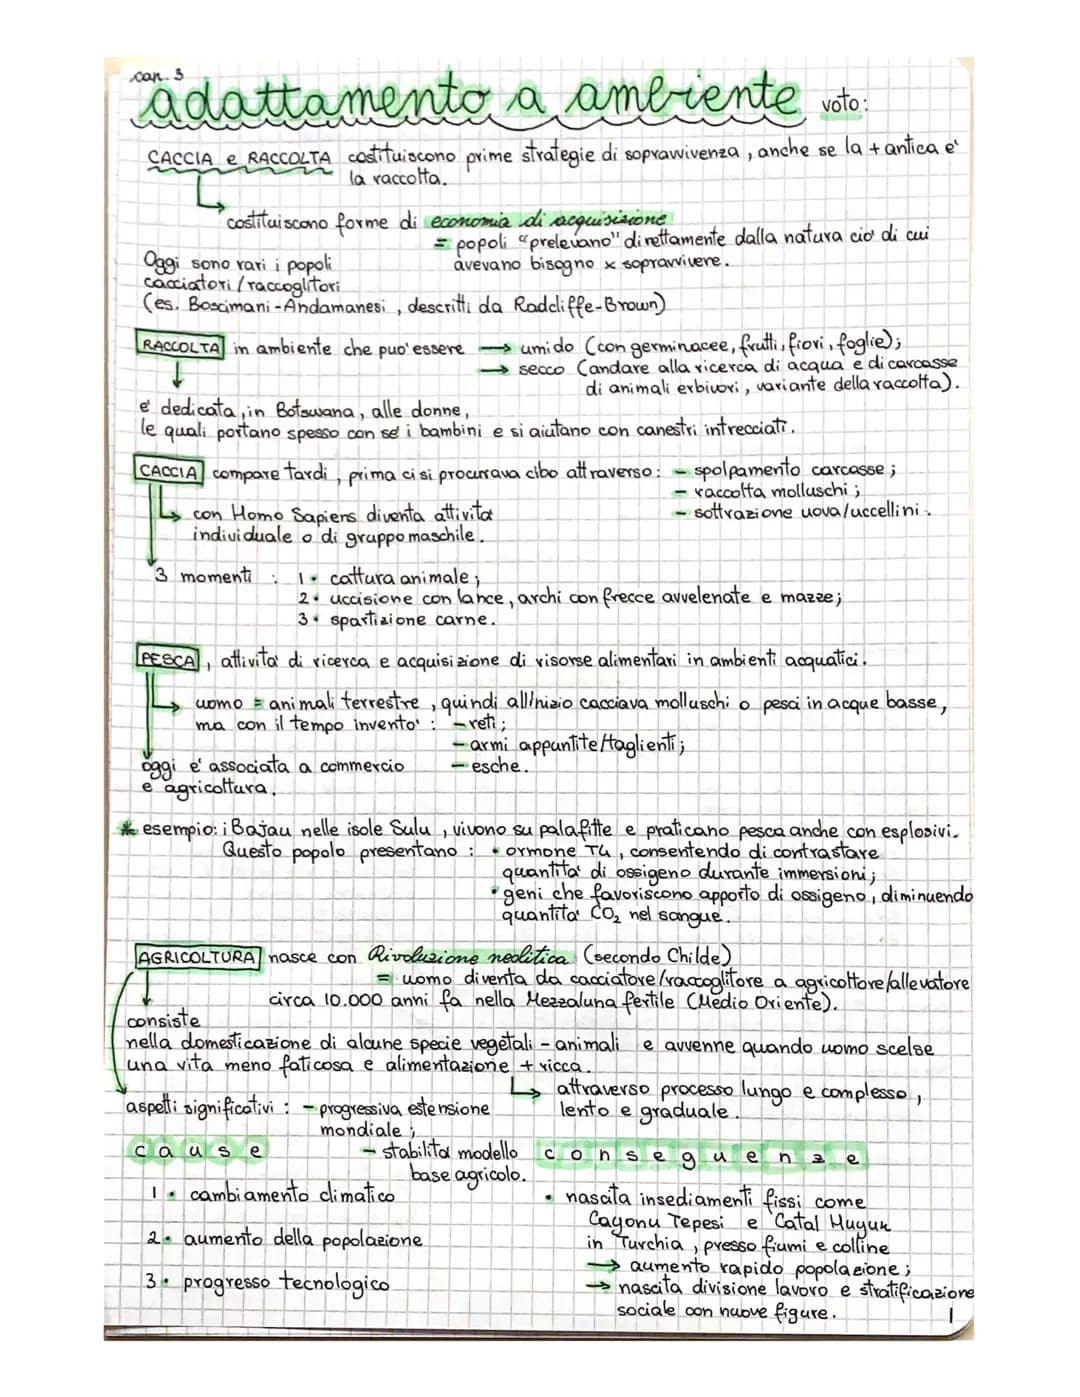 cap. 3
adattamento a ambiente voto:
CACCIA e RACCOLTA costituiscono prime strategie di sopravvivenza, anche se la + antica e'
la raccolta.
costituiscono forme di economia di acquisizione
= popoli "prelevano" direttamente dalla natura cio' di cui
avevano bisogno x sopravvivere.
Oggi sono rari i popoli
cacciatori/raccoglitori
(es. Boscimani-Andamanesi, descritti da Radcliffe-Brown)
RACCOLTA in ambiente che puo' essere → umido (con germinacee, frutti, fiori, foglie);
→ secco (andare alla ricerca di acqua e di carcasse
di animali erbivori, variante della raccolta).
e' dedicata, in Botswana, alle donne,
le quali portano spesso con se' i bambini e si aiutano con canestri intrecciati.
CACCIA compare tardi, prima ci si procurava cibo attraverso: - spolpamento carcasse;
- raccolta molluschi;
- sottrazione uova/uccellini.
con Homo Sapiens diventa attivita'
individuale o di gruppo maschile.
3 momenti : 1• cattura animale;
2• uccisione con lance, archi con frecce avvelenate e mazze;
3• spartizione carne.
PESCA, attivita' di ricerca e acquisizione di risorse alimentari in ambienti acquatici.
uomo = animali terrestre, quindi all'inizio cacciava molluschi o pesci in acque basse,
ma con il tempo invento' : - reti;
- armi appuntite/taglienti;
- esche.
oggi e' associata a commercio
e agricoltura.
* esempio: i Bajau nelle isole Sulu, vivono su palafitte e praticano pesca anche con esplosivi.
Questo popolo presentano : • ormone T4, consentendo di contrastare
quantita' di ossigeno durante immersioni;
• geni che favoriscono apporto di ossigeno, diminuendo
quantita' CO₂ nel sangue.
AGRICOLTURA nasce con Rivoluzione neolitica (secondo Childe)
= uomo diventa da cacciatore/raccoglitore a agricoltore/allevatore
circa 10.000 anni fa nella Mezzaluna fertile (Medio Oriente).
consiste
nella domesticazione di alcune specie vegetali - animali e avvenne quando uomo scelse
una vita meno faticosa e alimentazione + ricca.
attraverso processo lungo e complesso,
lento e graduale.
aspetti significativi : - progressiva estensione
mondiale;
- stabilita' modello
base agricolo.
cause
1• cambiamento climatico
2• aumento della popolazione
3• progresso tecnologico
conseguenze
• nascita insediamenti fissi come
Cayonu Tepesi e Catal Huyuk
in Turchia, presso fiumi e colline
→ aumento rapido popolazione;
→ nascita divisione lavoro e stratificazione
sociale con nuove figure.
1